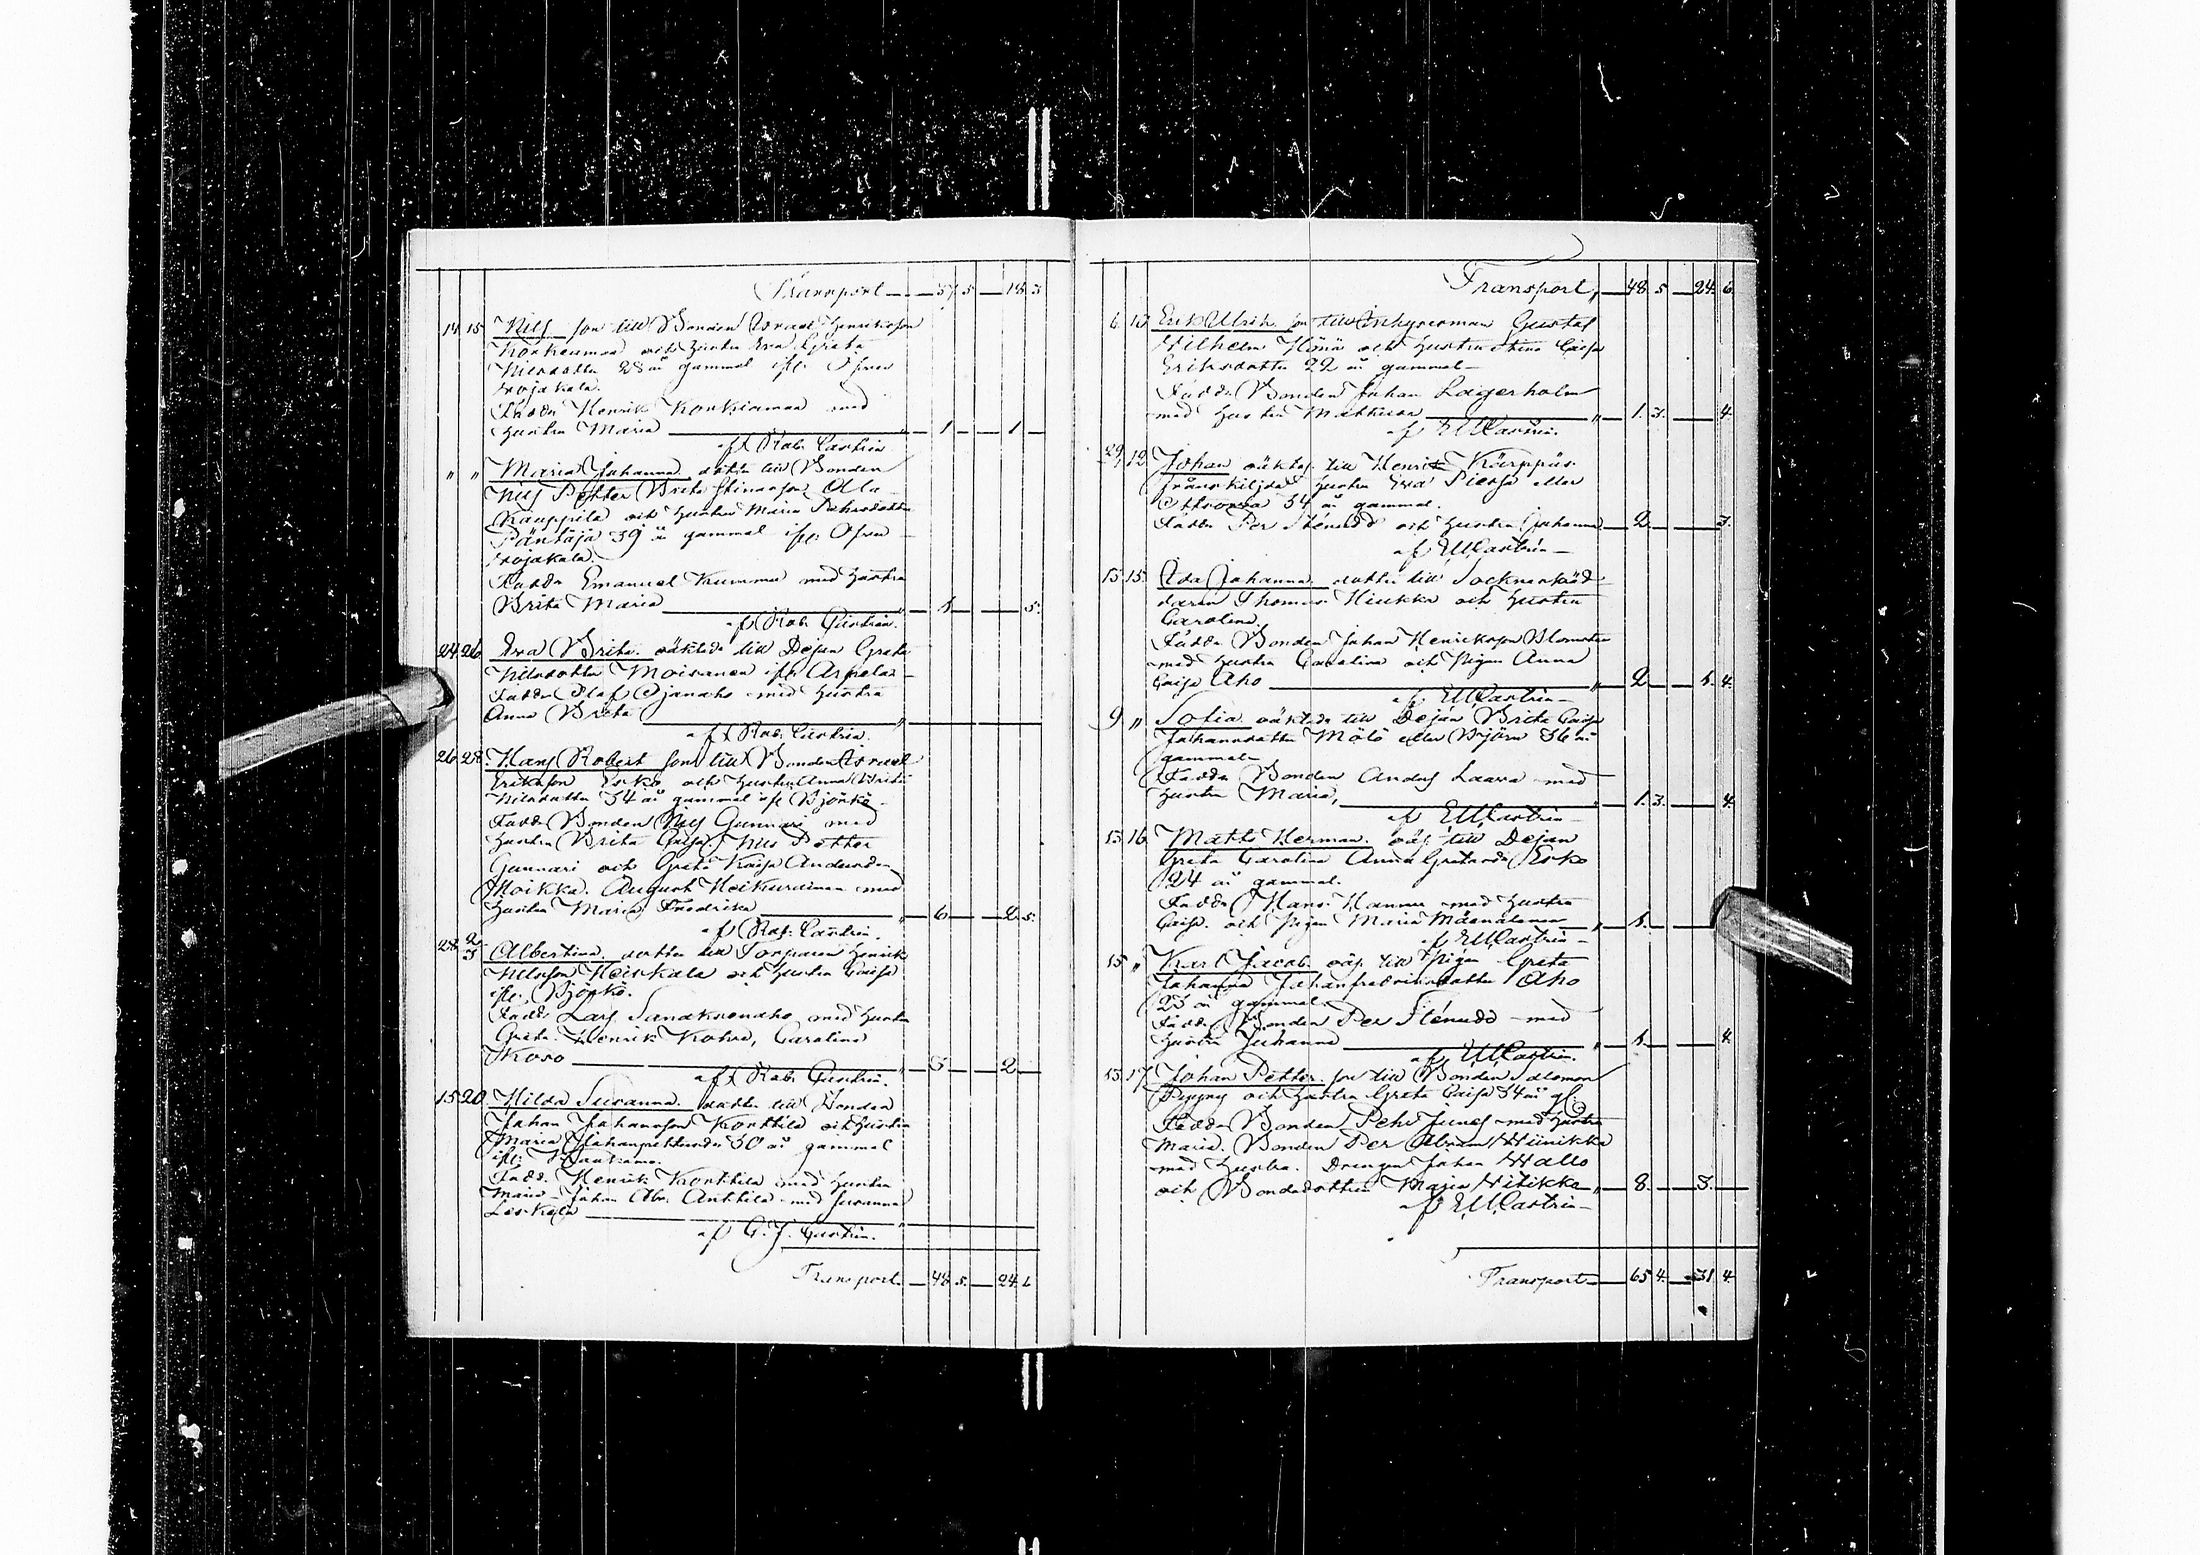 Transport — 37 5 — 18 3
14 15 Nils son till Bonden Israel Henriksson
Korkiamaa och hustru Eva Greta
Nilsdotter 28 år gammal ifr. Öfver
Vojakala.
Fadd. Henrik Korkiamaa med
hustru Maria — 1 — 1 —
af Rob. Castrén
" " Maria Johanna dotter till Bonden
Nils Petter Brita Stinasson Ala
Kauppila och hustru Maria
Päntäjä 39 år gammal ifr. Öfver
Vojakala.
Fadd. Emanuel Kummu med hustru
Brita Maria — 1 — 5.
af Rob. Castrén.
24 26 Eva Brita oäktade till Dejan Greta
Nilsdotter Moisanen ifr. Arpela
Fadd. Olof Ojanaho med hustru
Anna Brita
af Rob. Castrén.
26 28 Hans Robert son till Bonden Israel
Eriksson Erko och hustru Anna Brita
Nilsdotter 34 år gammal ifr. Björkö
Fadd. Bonden Nils Gunnari med
hustru Brita Caisa, Nils Petter
Gunnari och Greta Kaisa Andersdr
Moikka. August Heikurainen med
hustru Maria Fredrika — 6 — 2 5.
af Rob. Castrén.
28 2/3 Albertina dotter till Torparen Henrik
Nilsson Heikkala och hustru Caisa
ifr. Björkö.
Fadd. Lars Sandkronaho med hustru
Greta. Henrik Kohva, Carolina
Koso — 3 — 2 —
af Rob. Castrén.
15 20 Hilda Susanna dotter till Bonden
Johan Johansson Korttila och hustru
Maria Johanpettersdr 30 år gammal
ifr.
Fadd. Henrik Korttila med hustru
Maria. Johan Abr. Anttila med Susanna
af G. J. Castrén.
Transport — 48 5. — 24 6
Transport, — 48 5 — 24 6
6 13 Erik Ulrik son till Inhysesman Gustaf
Wilhelm Hönä och hustru Stina Caisa
Eriksdotter 22 år gammal —
Fadd. Bonden Johan Lagerholm
med hustru Mathilda — 1. 3. — 4.
af E M Castrén.
29 12 Johan oäktas. till Henrik Kärppäs
frånskiljda hustru Eva Piessa eller
34 år gammal.
Fadd. Per Stenudd och hustru Johanna — 2 — 3.
af E M Castrén —
15 15 Ida Johanna dotter till Socknerskräd
daren Thomas Hiukka och hustru
Carolina.
Fadd. Bonden Johan Henriksson Blomster
med hustru Carolina och Pigan Anna
Caisa Aho — 2 — 1. 4.
af E M Castrén —
9 " Sofia oäktade till Dejan Brita Caisa
Johansdotter Mölö eller Björn 36 år
gammal —
Fadd. Bonden Anders Laara med
hustru Maria, — 1. 3. — 4.
af E M Castrén —
13 16 Matts Herman oäs. till Dejan
Greta Carolina Anna Gretasdr Erko
24 år gammal.
Fadd. Hans Hannu med hustru
Caisa och pigan Maria Määttänen — 1.
af E M Castrén —
15 " Karl Jacob oäs. till pigan Greta
Johanna Johanfredriksdotter Aho
23 år gammal.
Fadd. Bonden Per Stenudd med
hustru Johanna — 1. — 4
af E M Castrén.
13 17 Johan Petter son till Bonden Salomon
och hustru Greta Caisa 34 år gl.
Fadd. Bonden Pehr Junes med hustru
Maria. Bonden Per Abram Hiinikka
med hustru. Drengen Johan Hallo
och Bondedottren Maria Hiikka — 8. — 3.
af E M Castrén —
Transport — 65 4. — 31 4.